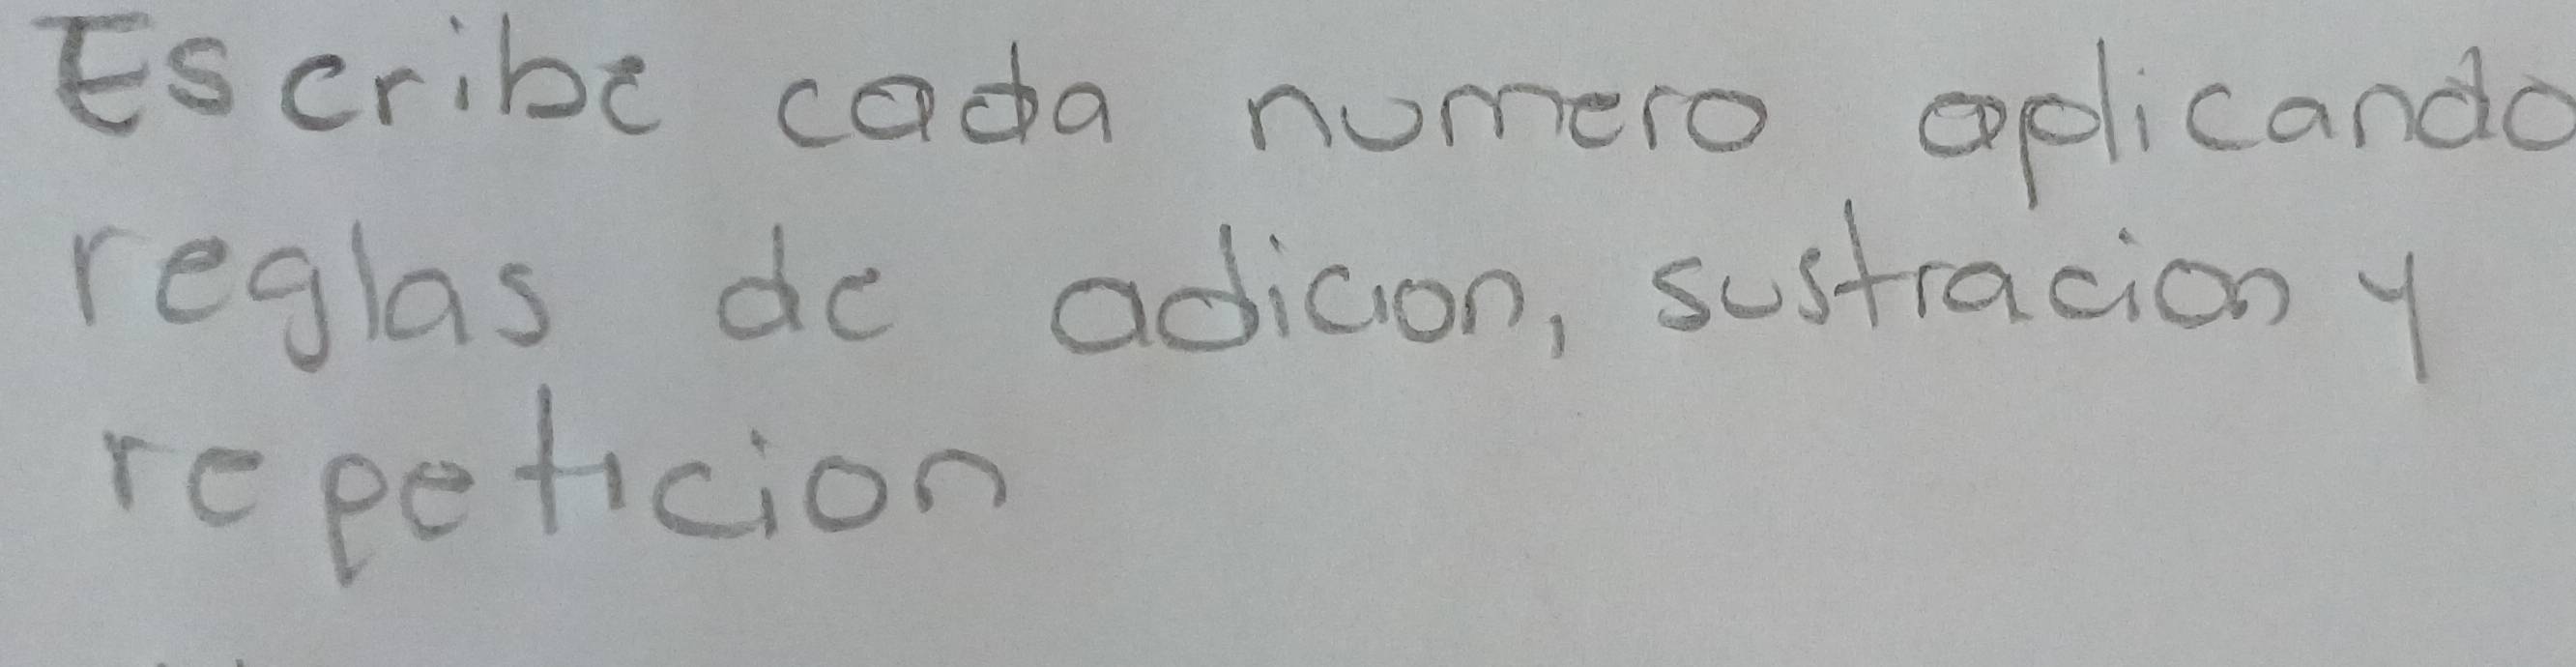 Escribe cada numero aplicando
reglas de adicion, sustracion y
repeticion